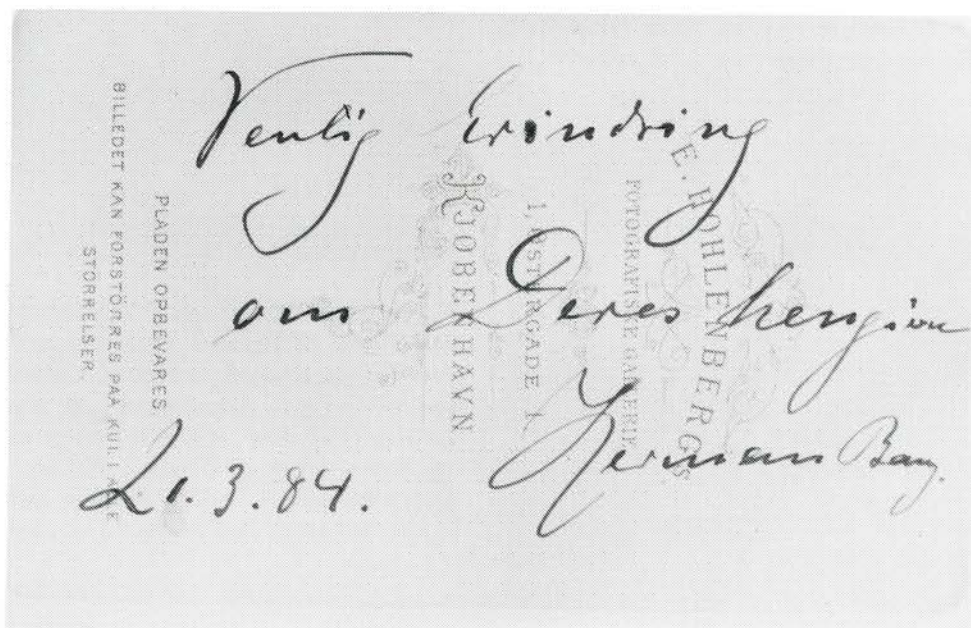 Venlig Erindring
om Deres hengivne
Herman Bang.
21.3.84.
E. HOHLENBERG'S
FOTOGRAFISKE GALLERIE
1, ØSTERGADE 1.
KJOBENHAVN
PLADEN OPBEVARES
BILLEDET KAN FORSTÖRRES PAA
STÖRRELSER.